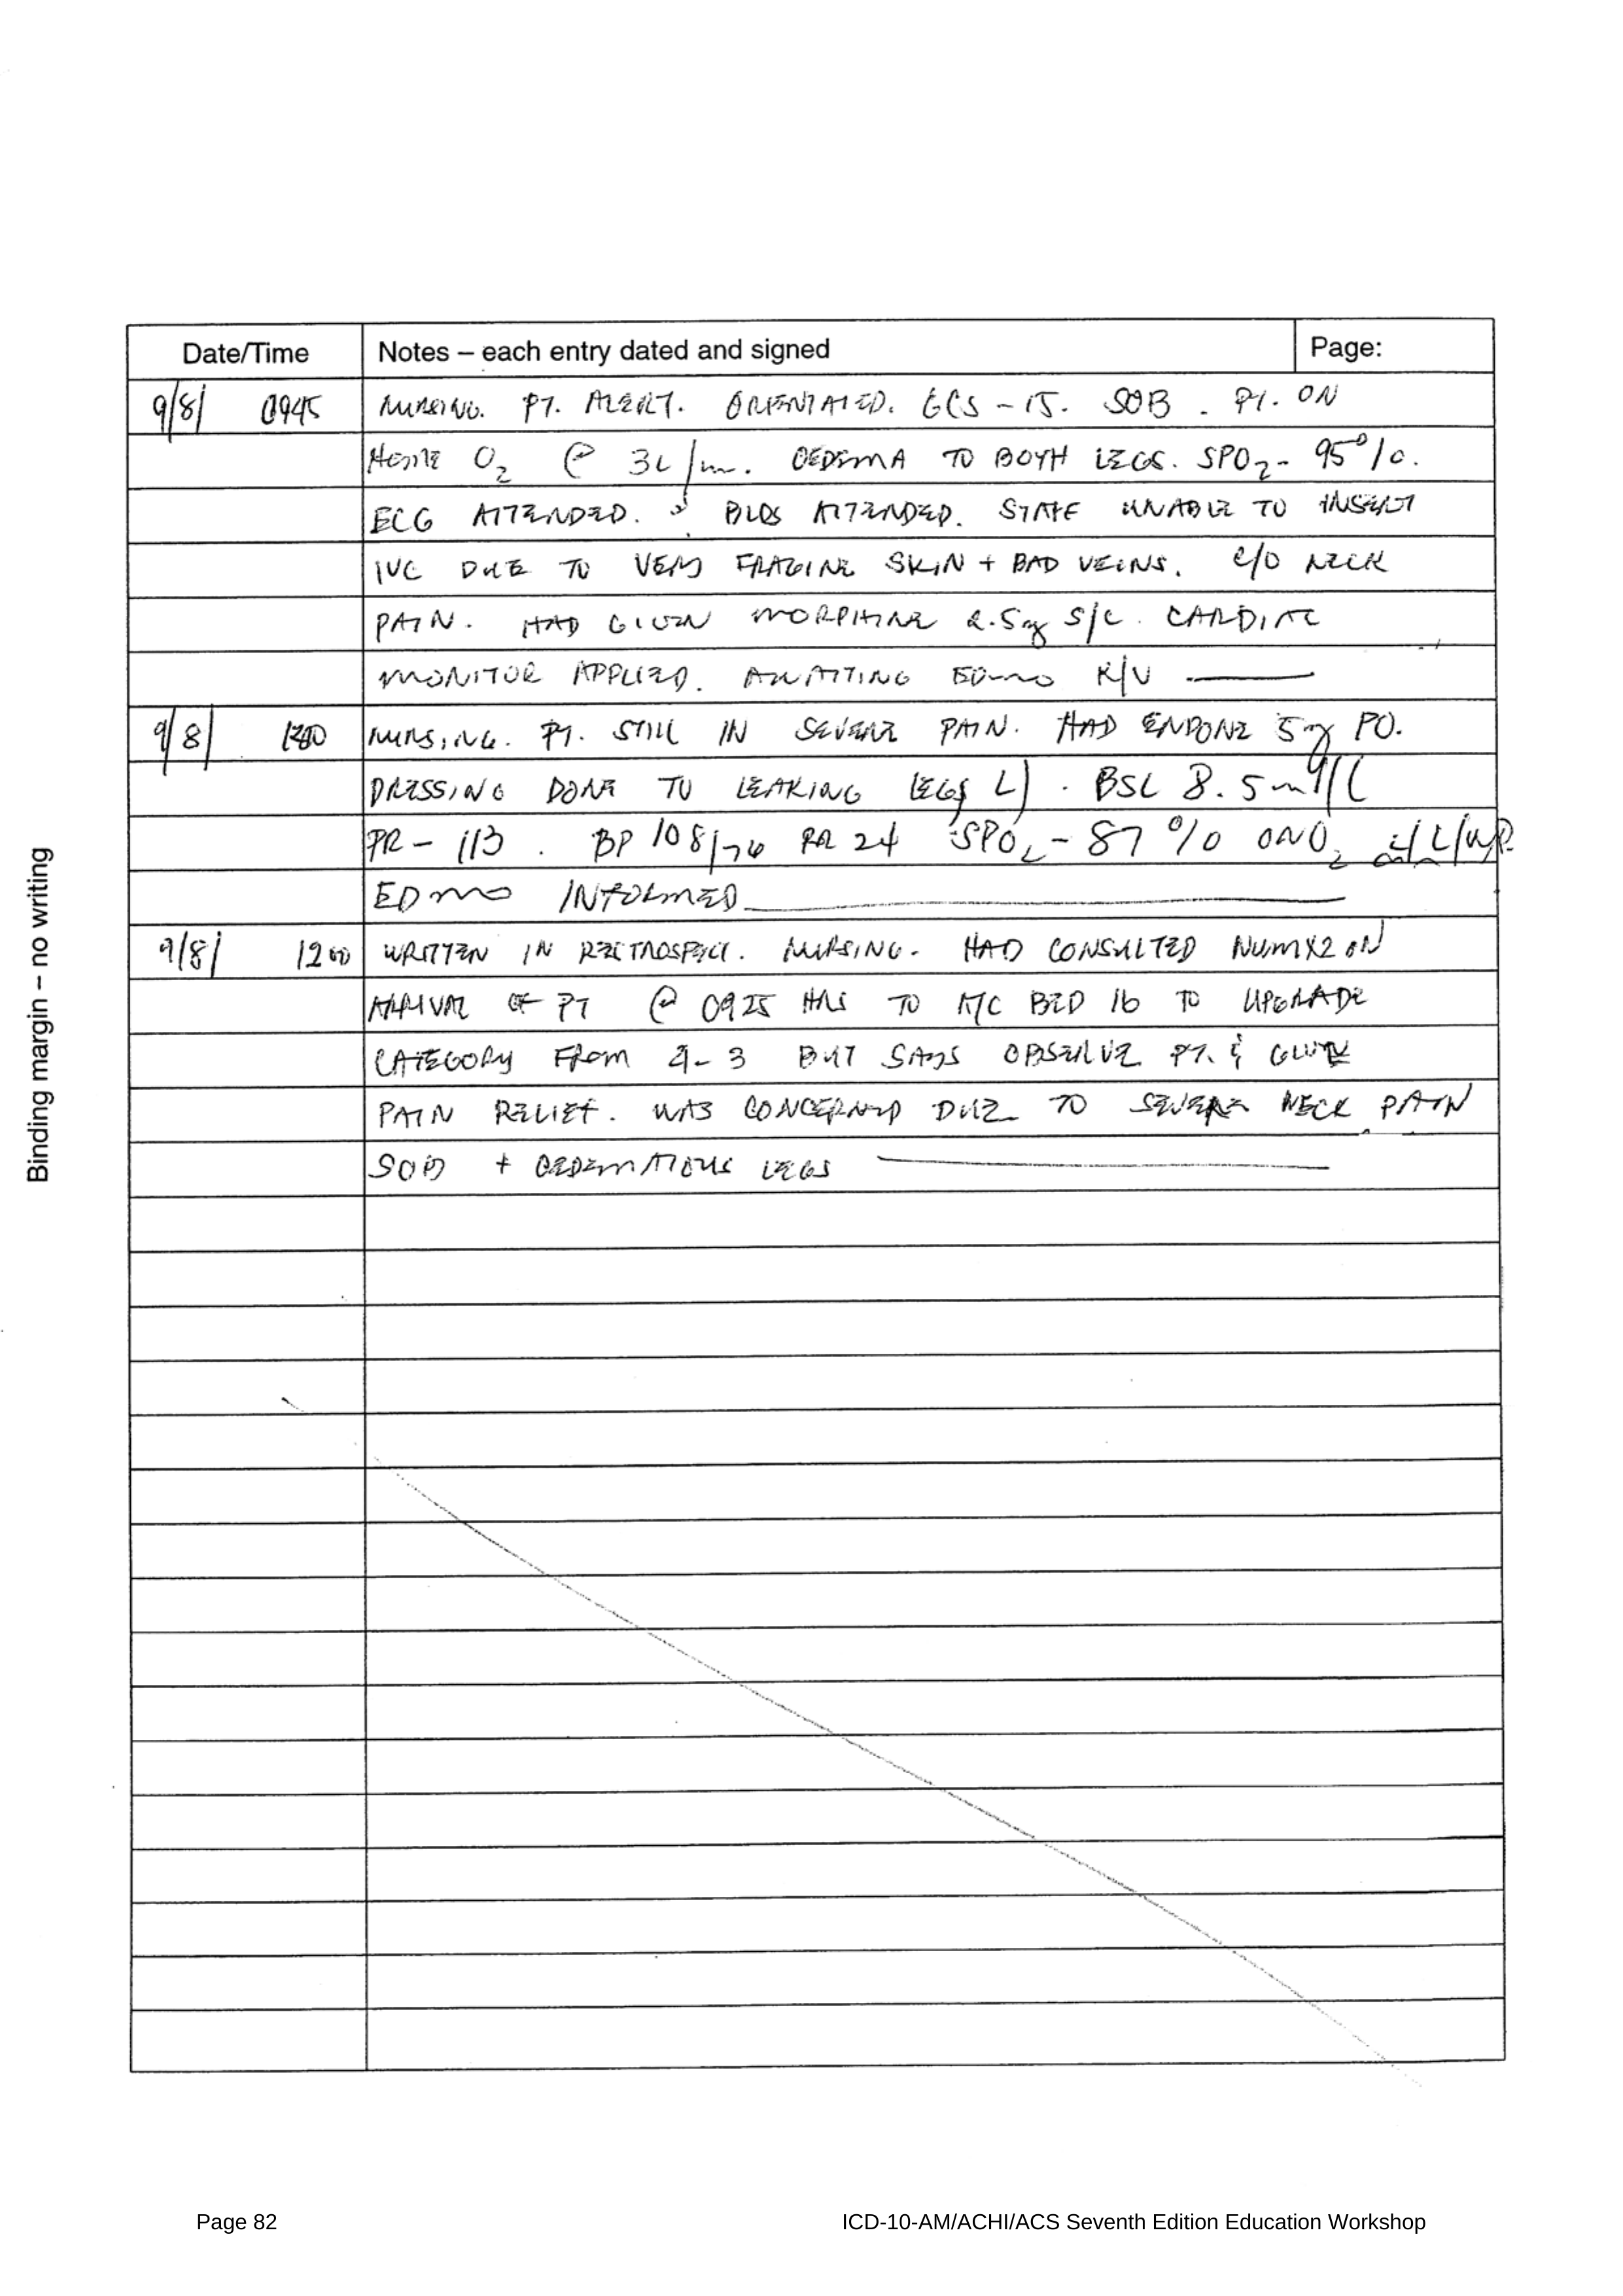 Date/Time Notes – each entry dated and signed Page:
9/8/ 0945 NURSING. PT. ALERT. ORIENTATED. GCS – 15. SOB. PT. ON
HOME O2 @ 3L/m. OEDEMA TO BOTH LEGS. SPO2 - 95%.
ECG ATTENDED. BLDS ATTENDED. STATE UNABLE TO INSERT
IVC DUE TO VERY FRAGINE SKIN + BAD VEINS. C/O NECK
PAIN. HAD GIVEN MORPHINE 2.5mg S/C. CARDIAC
MONITOR APPLIED. AWAITING EDMO R/V
9/8/ NURSING. PT. STILL IN SEVERE PAIN. HAD ENDONE 5mg PO.
DRESSING DONE TO LEAKING LEGS L). BSL 8.5
PR – 113. BP 108/76 RR 24 SPO2 – 87% ON O2
EDMO INFORMED
9/8/ 1200 WRITTEN IN RECTROSPECT. NURSING. HAD CONSULTED NUM X2 ON
ARRIVAL OF PT @ 0925 HRS TO A/C BED 16 TO UPGRADE
CATEGORY FROM 4 - 3 BUT SAYS OBSERVE PT. & GIVE
PAIN RELIEF. WAS CONCERNED DUE TO SEVERE NECK PAIN
SOB + OEDEMATOUS LEGS
Binding margin – no writing
Page 82 ICD-10-AM/ACHI/ACS Seventh Edition Education Workshop